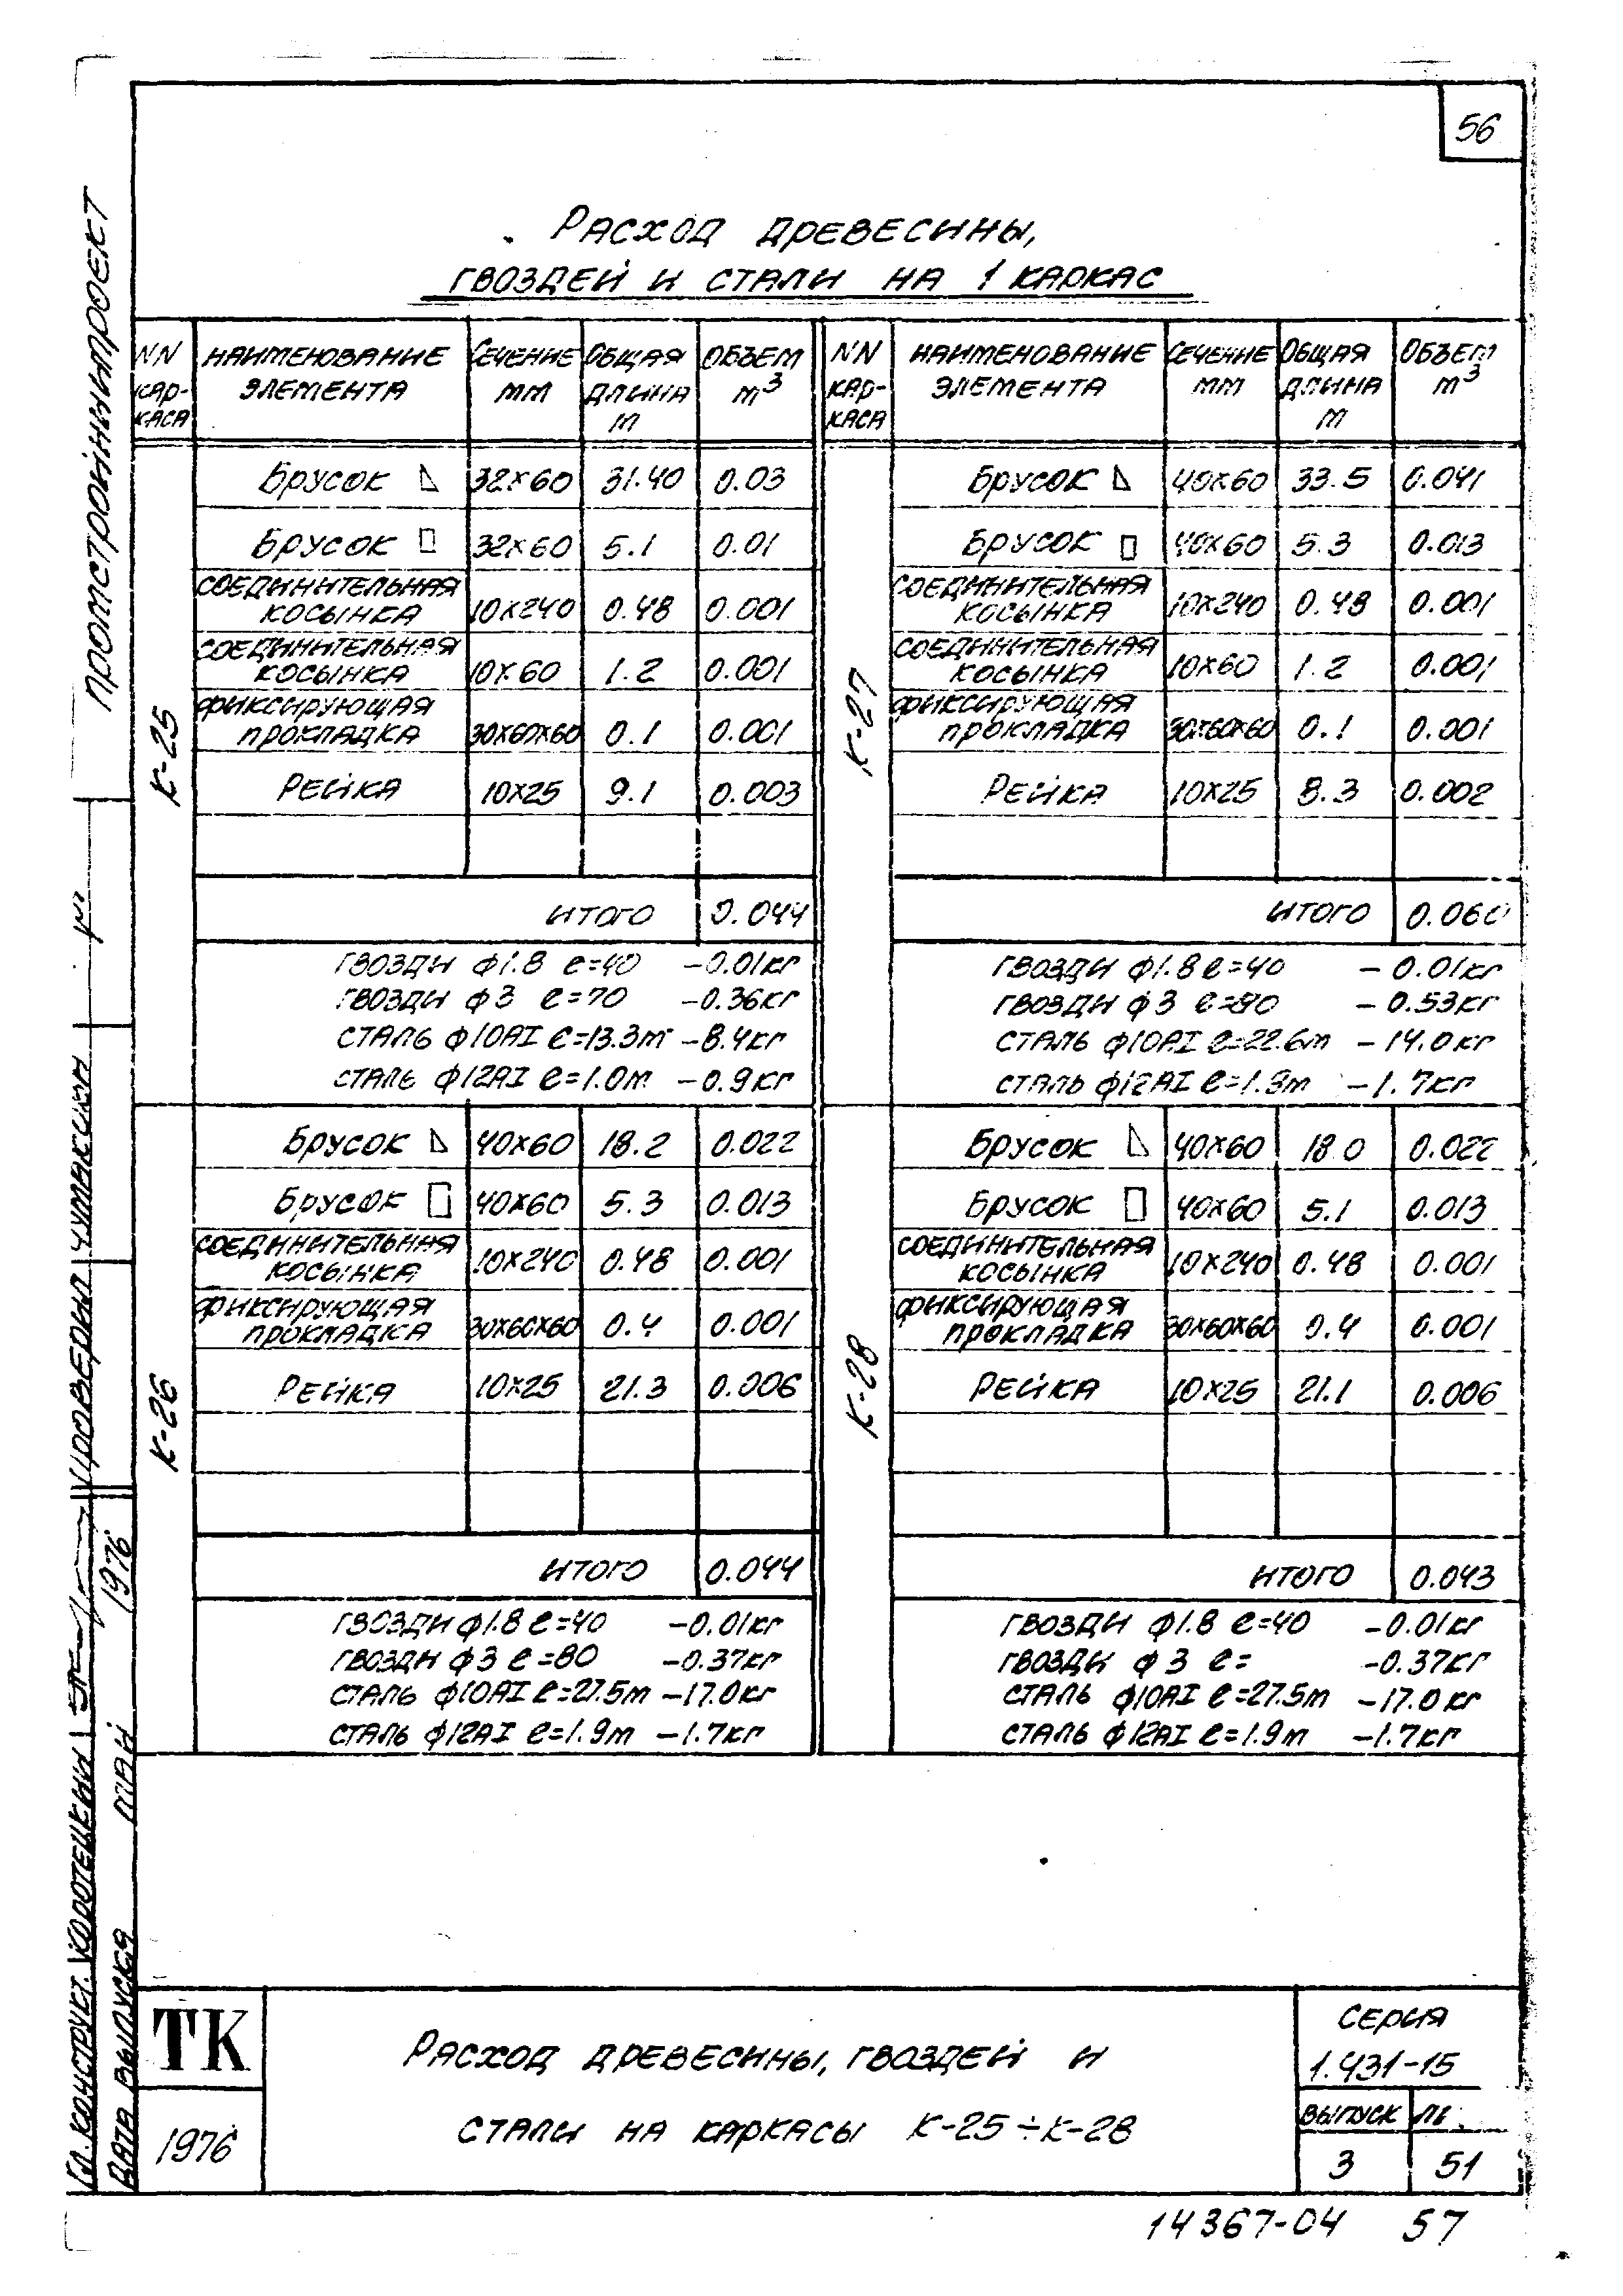 56
Расход древесины,
гвоздей и стали на 1 каркас
NN каркаса | Наименование элемента | Сечение мм | Общая длина м | Объем м³
К-25
Брусок 32×60 31.40 0.03
Брусок 32×60 5.1 0.01
Соединительная косынка 10×240 0.48 0.001
Соединительная косынка 10×60 1.2 0.001
Фиксирующая прокладка 30×60×60 0.1 0.001
Рейка 10×25 9.1 0.003
Итого 0.044
Гвозди ф1.8 ℓ=40 -0.01кг
Гвозди ф3 ℓ=70 -0.36кг
Сталь ф10АI ℓ=13.3м -8.4кг
Сталь ф12АI ℓ=1.0м -0.9кг
К-26
Брусок 40×60 18.2 0.022
Брусок 40×60 5.3 0.013
Соединительная косынка 10×240 0.48 0.001
Фиксирующая прокладка 30×60×60 0.4 0.001
Рейка 10×25 21.3 0.006
Итого 0.044
Гвозди ф1.8 ℓ=40 -0.01кг
Гвозди ф3 ℓ=80 -0.37кг
Сталь ф10АI ℓ=27.5м -17.0кг
Сталь ф12АI ℓ=1.9м -1.7кг
NN каркаса | Наименование элемента | Сечение мм | Общая длина м | Объем м³
К-27
Брусок 40×60 33.5 0.041
Брусок 40×60 5.3 0.013
Соединительная косынка 10×240 0.48 0.001
Соединительная косынка 10×60 1.2 0.001
Фиксирующая прокладка 30×60×60 0.1 0.001
Рейка 10×25 8.3 0.002
Итого 0.060
Гвозди ф1.8 ℓ=40 -0.01кг
Гвозди ф3 ℓ=80 -0.53кг
Сталь ф10АI ℓ=22.6м -14.0кг
Сталь ф12АI ℓ=1.9м -1.7кг
К-28
Брусок 40×60 18.0 0.022
Брусок 40×60 5.1 0.013
Соединительная косынка 10×240 0.48 0.001
Фиксирующая прокладка 30×60×60 0.4 0.001
Рейка 10×25 21.1 0.006
Итого 0.043
Гвозди ф1.8 ℓ=40 -0.01кг
Гвозди ф3 ℓ= -0.37кг
Сталь ф10АI ℓ=27.5м -17.0кг
Сталь ф12АI ℓ=1.9м -1.7кг
Промстройниипроект
Проверил
Гл. конструкт. Коротецкий
Дата выпуска май 1976
ТК
1976
Расход древесины, гвоздей и
стали на каркасы К-25÷К-28
Серия
1.431-15
Выпуск
3 51
14367-04 57